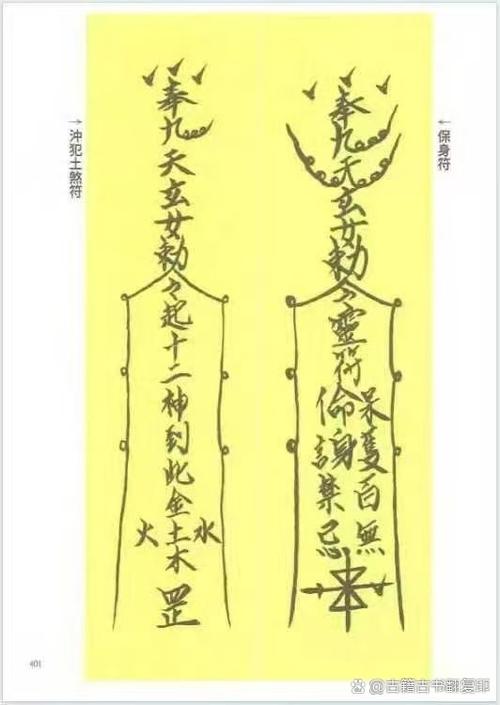 ←保身符
奉九天玄女勅令靈符
保命
護身
百無
禁忌
→沖犯土煞符
奉九天玄女勅令起十二神到此金
水 土 火
木
罡
401
古籍古书翻复印